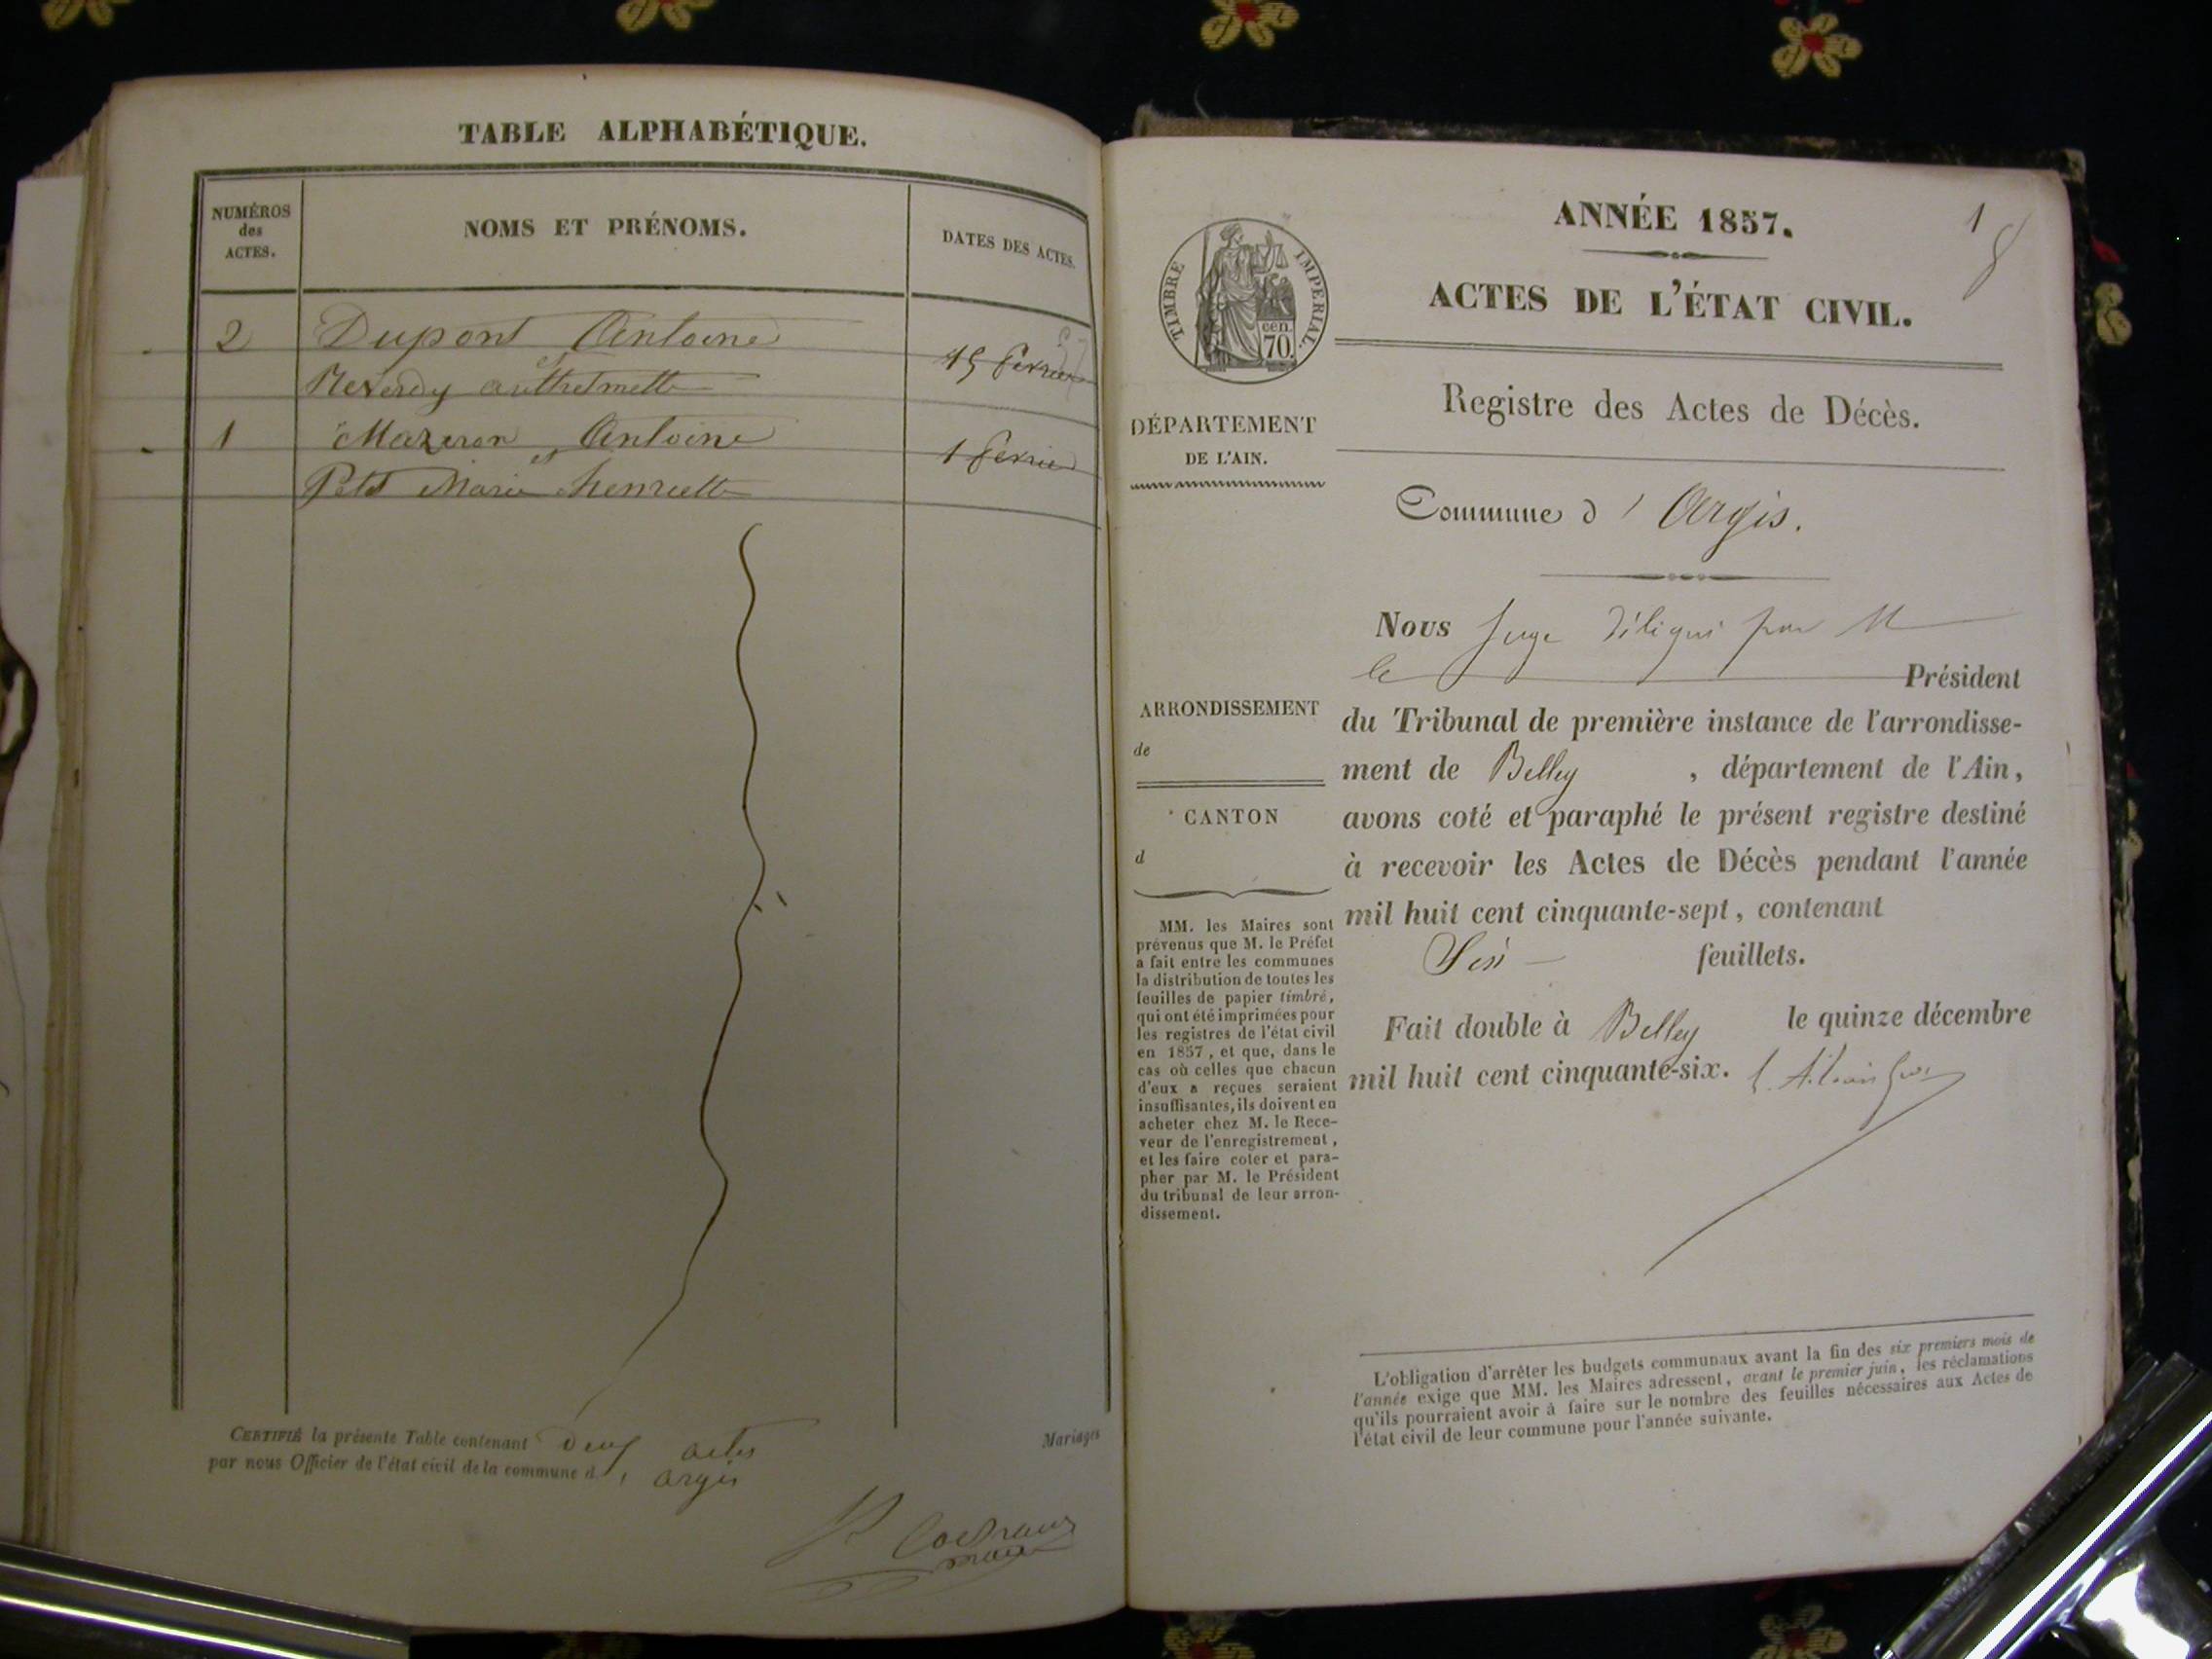 TABLE ALPHABÉTIQUE.
NUMÉROS
des
ACTES.
NOMS ET PRÉNOMS.
DATES DES ACTES.
2 Dupont Antoine
et
Reverdy 15 février
1 Mazeron Antoine
et
Petit Marie henriette 1 février
CERTIFIÉ la présente Table contenant deux actes Mariages
par nous Officier de l'état civil de la commune d' argis
maire
1
ANNÉE 1857.
ACTES DE L'ÉTAT CIVIL.
TIMBRE IMPERIAL.
cen.
70.
Registre des Actes de Décès.
DÉPARTEMENT
DE L'AIN.
Commune d'Argis.
ARRONDISSEMENT
de
CANTON
d
MM. les Maires sont
prévenus que M. le Préfet
a fait entre les communes
la distribution de toutes les
feuilles de papier timbré,
qui ont été imprimées pour
les registres de l'état civil
en 1857, et que, dans le
cas où celles que chacun
d'eux a reçues seraient
insuffisantes, ils doivent en
acheter chez M. le Rece-
veur de l'enregistrement,
et les faire coter et para-
pher par M. le Président
du tribunal de leur arron-
dissement.
Nous Juge délégué par M
le Président
du Tribunal de première instance de l'arrondisse-
ment de Belley, département de l'Ain,
avons coté et paraphé le présent registre destiné
à recevoir les Actes de Décès pendant l'année
mil huit cent cinquante-sept, contenant
Six feuillets.
Fait double à Belley le quinze décembre
mil huit cent cinquante-six.
L'obligation d'arrêter les budgets communaux avant la fin des six premiers mois de
l'année exige que MM. les Maires adressent, avant le premier juin, les réclamations
qu'ils pourraient avoir à faire sur le nombre des feuilles nécessaires aux Actes de
l'état civil de leur commune pour l'année suivante.